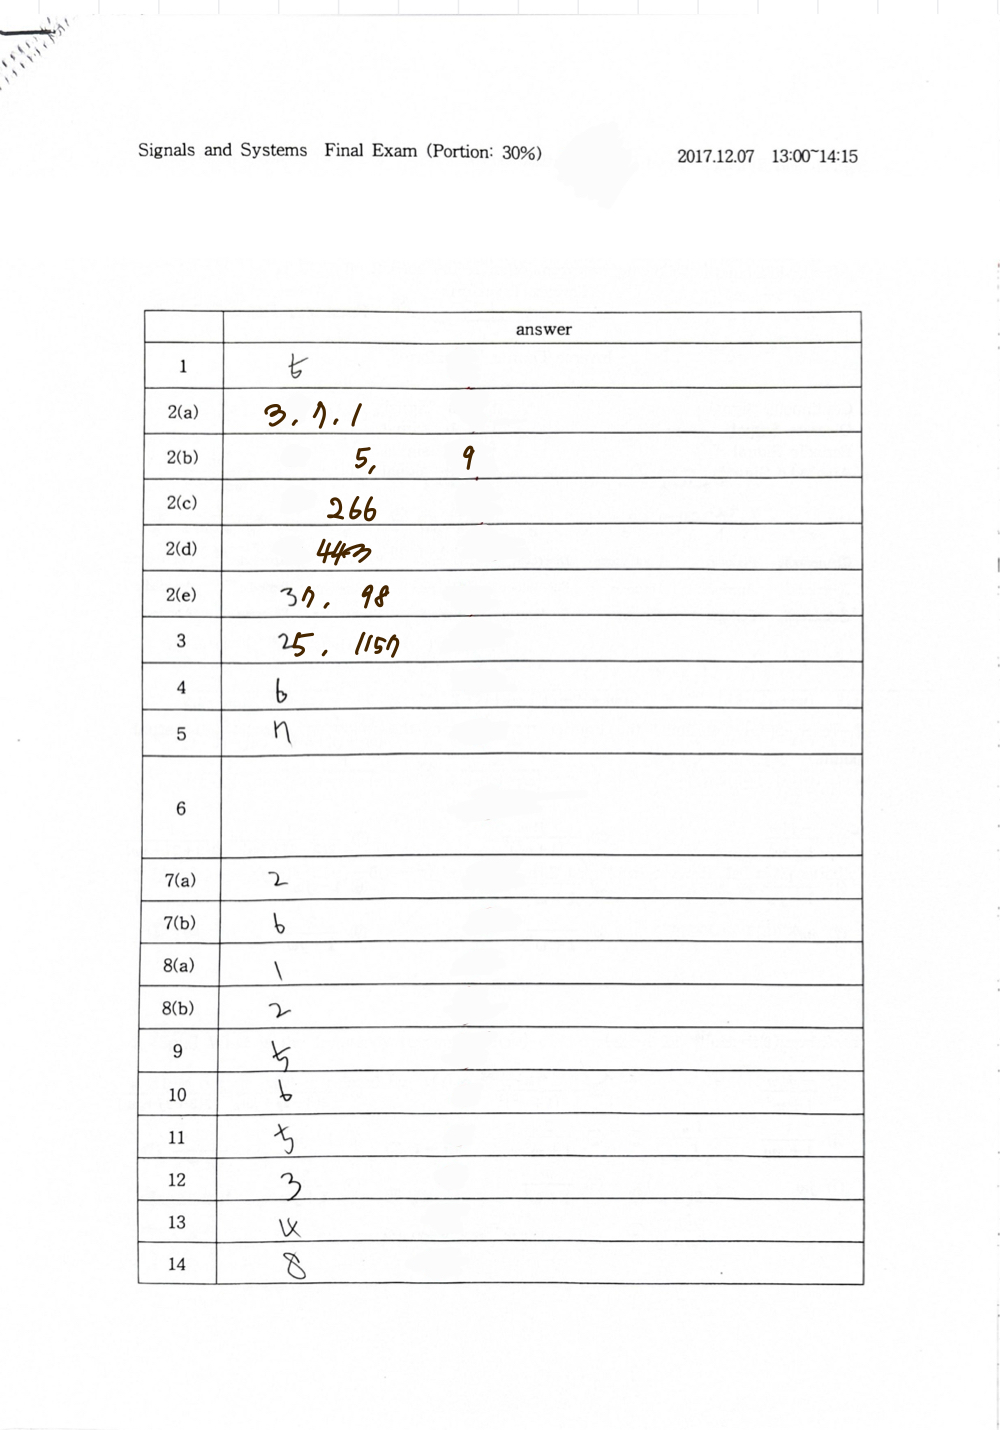 Signals and Systems Final Exam (Portion: 30%)
2017.12.07 13:00~14:15
answer
1 5
2(a) 3, 7, 1
2(b) 5, 9
2(c) 266
2(d) 443
2(e) 37, 98
3 25, 1157
4 6
5 7
6
7(a) 2
7(b) 6
8(a) 1
8(b) 2
9 5
10 6
11 5
12 3
13 4
14 8